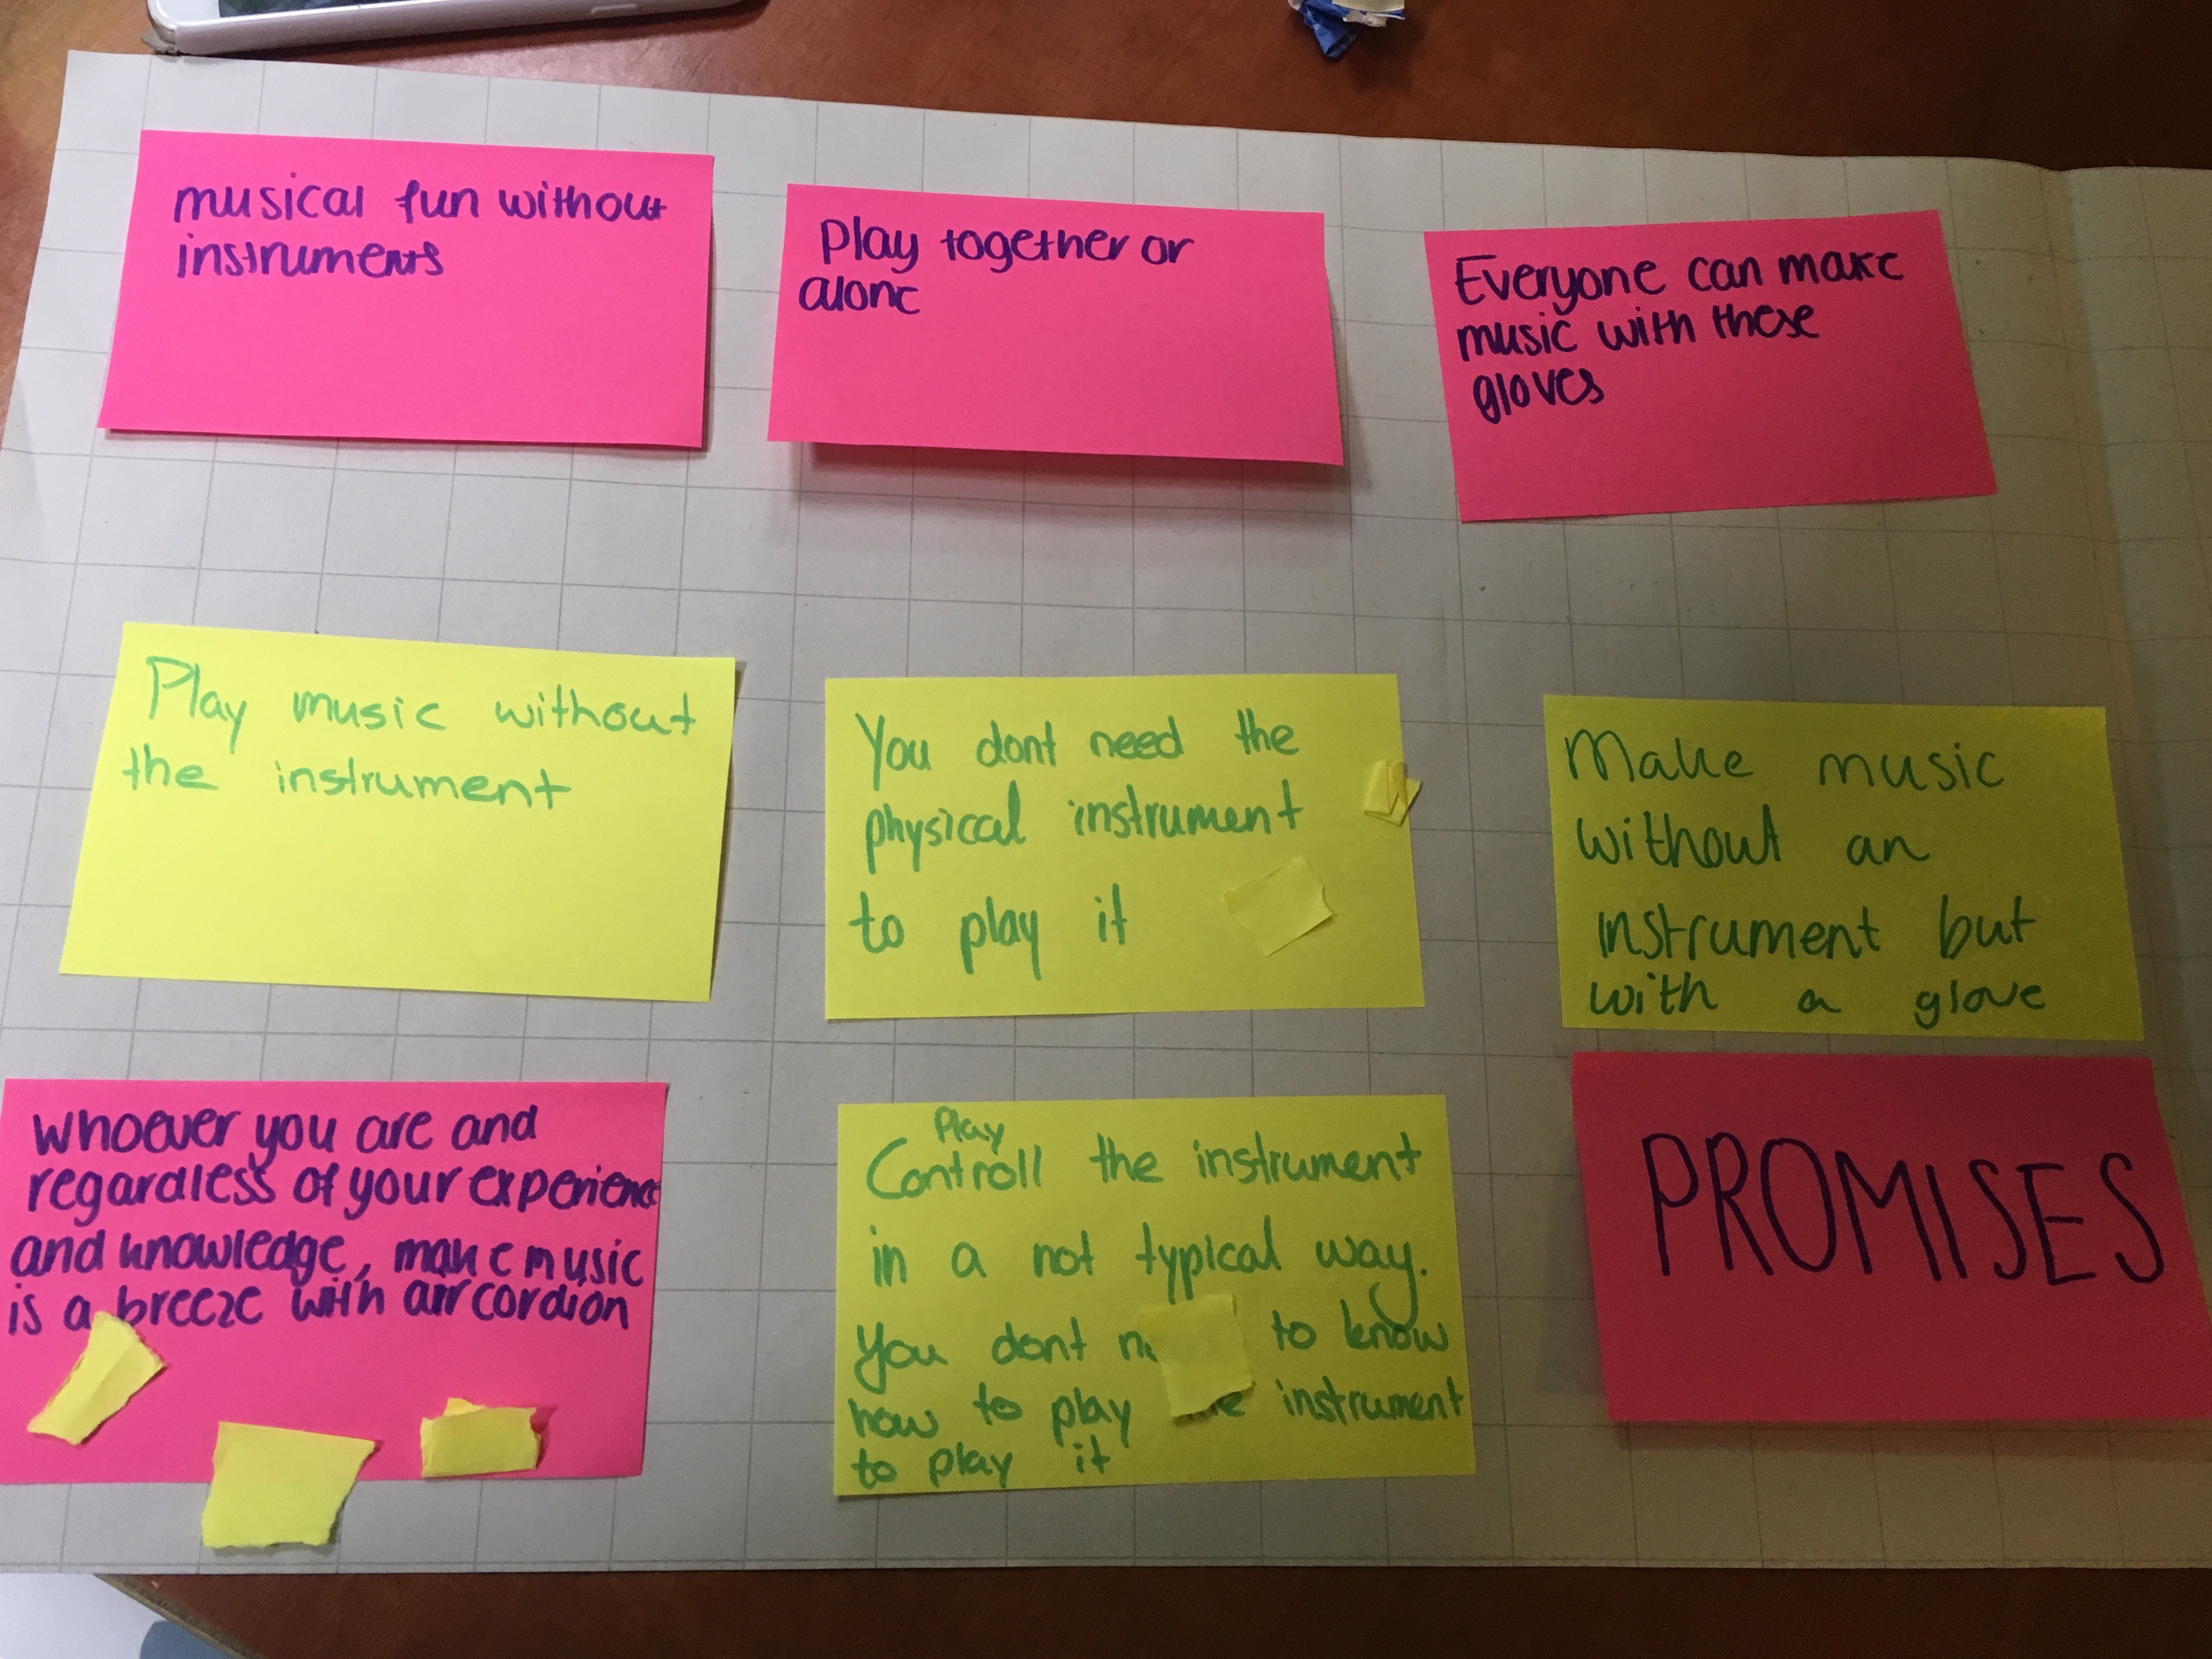 musical fun without
instruments
Play together or
alone
Everyone can make
music with these
gloves
Play music without
the instrument
You dont need the
physical instrument
to play it
Make music
without an
instrument but
with a glove
whoever you are and
regardless of your experience
and knowledge, make music
is a breeze with aircordion
Play
Controll the instrument
in a not typical way.
You dont to know
how to play instrument
to play it
PROMISES